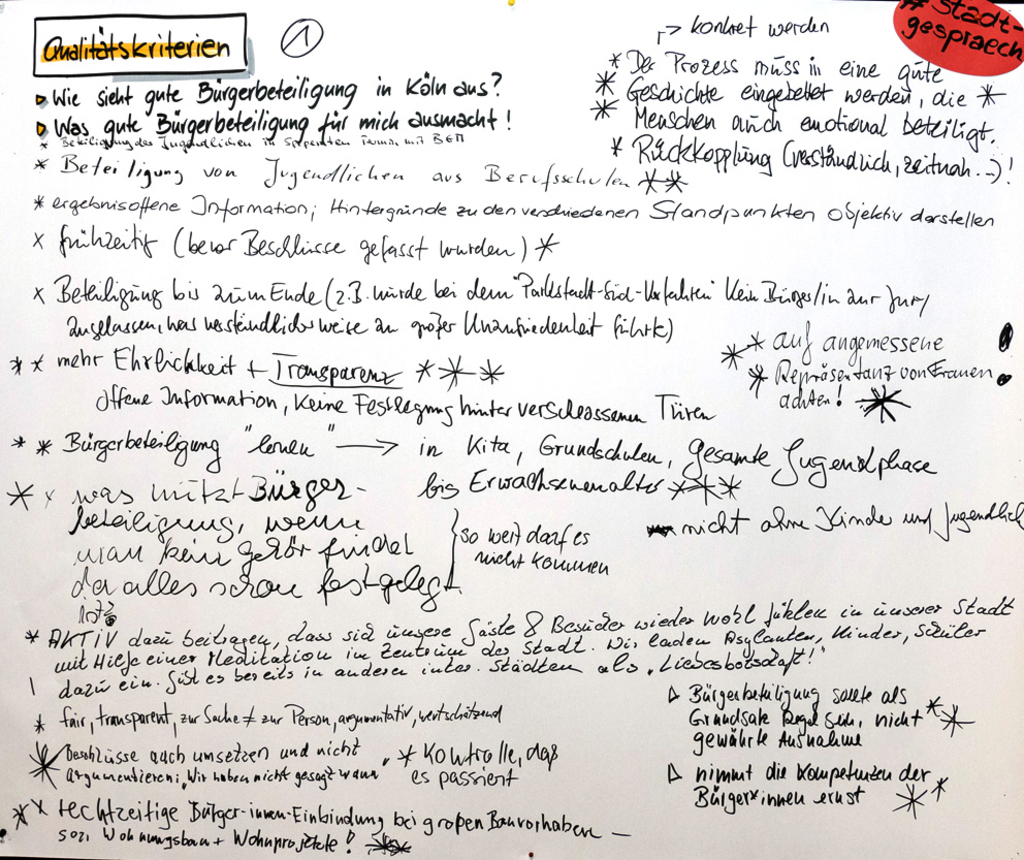 Qualitätskriterien
1
# Stadt-
gespraech
Wie sieht gute Bürgerbeteiligung in Köln aus?
Was gute Bürgerbeteiligung für mich ausmacht!
* Beteiligung der Jugendlichen in separaten Termin mit
* Beteiligung von Jugendlichen aus Berufsschulen **
-> konkret werden
* Der Prozess muss in eine gute
* Geschichte eingebettet werden, die *
* Menschen auch emotional beteiligt.
* Rückkopplung (verständlich, zeitnah...)!
* ergebnisoffene Information; Hintergründe zu den verschiedenen Standpunkten objektiv darstellen
x frühzeitig (bevor Beschlüsse gefasst wurden) *
x Beteiligung bis zum Ende (z.B. wurde bei dem "Parkstadt-Süd-Verfahren" kein Bürger/in zur Jury
zugelassen, was verständlicherweise zu großer Unzufriedenheit führte)
* x mehr Ehrlichkeit + Transparenz ***
offene Information, keine Festlegung hinter verschlossenen Türen
* * auf angemessene
* Repräsentanz von Frauen
achten! *
* * Bürgerbeteiligung "lernen" -> in Kita, Grundschulen, gesamte Jugendphase
bis Erwachsenenalter ***
* x was nützt Bürger-
beteiligung, wenn
man kein gehör findet
da alles schon festgelegt
ist?
so weit darf es
nicht kommen
nicht ohne Kinder und Jugendlich
* AKTiV dazu beitragen, dass sich unsere Gäste & Besucher wieder wohl fühlen in unserer Stadt
mit Hilfe einer Meditation im Zentrum der Stadt. Wir laden Asylanten, Kinder, Schüler
! dazu ein. Gibt es bereits in anderen inter. Städten als "Liebesbotschaft!"
* fair, transparent, zur Sache ≠ zur Person, argumentativ, wertschätzend
* Beschlüsse auch umsetzen und nicht
argumentieren: "Wir haben nicht gesagt wann"
* Kontrolle, daß
es passiert
Bürgerbeteiligung sollte als
Grundsatz Regel sein, nicht *
gewährte Ausnahme *
nimmt die Kompetenzen der
Bürger*innen ernst **
* x rechtzeitige Bürger-innen-Einbindung bei großen Bauvorhaben –
soz. Wohnungsbau + Wohnprojekte! **